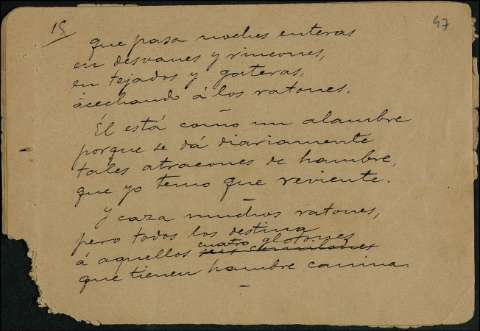 15
47
que pasa noches enteras
en desvanes y rincones,
en tejados y gateras,
acechando á los ratones.
Él está como un alambre
porque se dá diariamente
tales atracones de hambre,
que yo temo que reviente.
Y caza muchos ratones,
pero todos los destina
cuatro glotones
á aquellos seis
que tienen hambre canina.